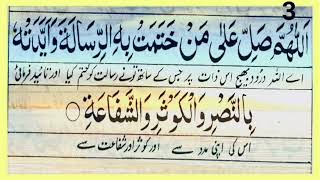 3
اَللّٰهُمَّ صَلِّ عَلٰى مَنْ خَتَمْتَ بِهِ الرِّسَالَةَ وَاَيَّدْتَّهٗ
اے اللہ درود بھیج اس ذات پر جس کے ساتھ تو نے رسالت کو ختم کیا اور تائید فرمائی
بِالنَّصْرِ وَالْكَوْثَرِ وَالشَّفَاعَةِ ○
اس کی اپنی مدد سے اور کوثر اور شفاعت سے